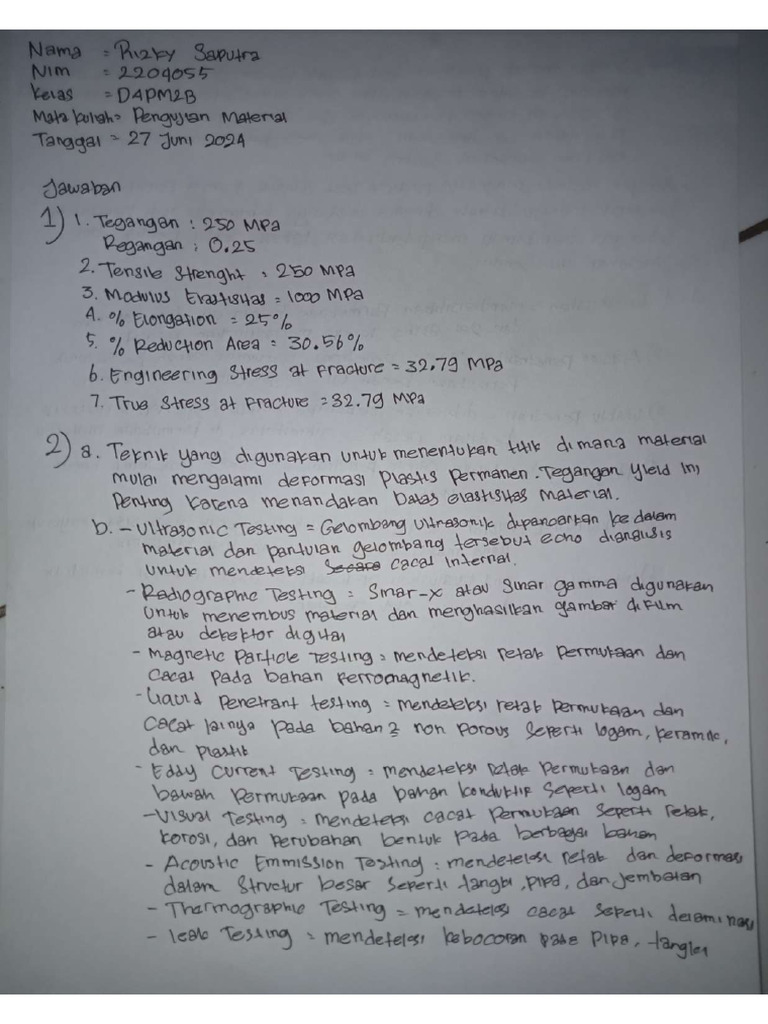 Nama = Rizky Saputra
Nim = 2204055
Kelas = D4PM2B
Mata kuliah = Pengujian Material
Tanggal = 27 Juni 2024
Jawaban
1) 1. Tegangan : 250 MPa
Regangan : 0.25
2. Tensile Strenght : 250 MPa
3. Modulus Erastisitas = 1000 MPa
4. % Elongation = 25%
5. % Reduction Area = 30.56%
6. Engineering Stress at fracture = 32.79 MPa
7. True Stress at fracture = 32.79 MPa
2) a. Teknik yang digunakan untuk menentukan titik dimana material
mulai mengalami deformasi plastis permanen. Tegangan yield ini
penting karena menandakan batas elastisitas material.
b. - Ultrasonic Testing = Gelombang ultrasonik dipancarkan ke dalam
material dan pantulan gelombang tersebut echo dianalisis
untuk mendeteksi secara cacat internal.
- Radiographic Testing = Sinar-x atau sinar gamma digunakan
untuk menembus material dan menghasilkan gambar di film
atau detektor digital
- Magnetic Particle Testing = mendeteksi retak permukaan dan
cacat pada bahan ferromagnetik.
- Liquid Penetrant testing = mendeteksi retak permukaan dan
cacat lainya pada bahan2 non porous seperti logam, keramik,
dan plastik
- Eddy Current Testing = mendeteksi retak permukaan dan
bawah permukaan pada bahan konduktif seperti logam
- Visual Testing = mendeteksi cacat permukaan seperti retak,
korosi, dan perubahan bentuk pada berbagai bahan
- Acoustic Emmission Testing : mendeteksi retak dan deformasi
dalam structur besar seperti tangki, pipa, dan jembatan
- Thermographic Testing = mendeteksi cacat seperti delaminasi
- leak Testing = mendeteksi kebocoran pada pipa, tangki